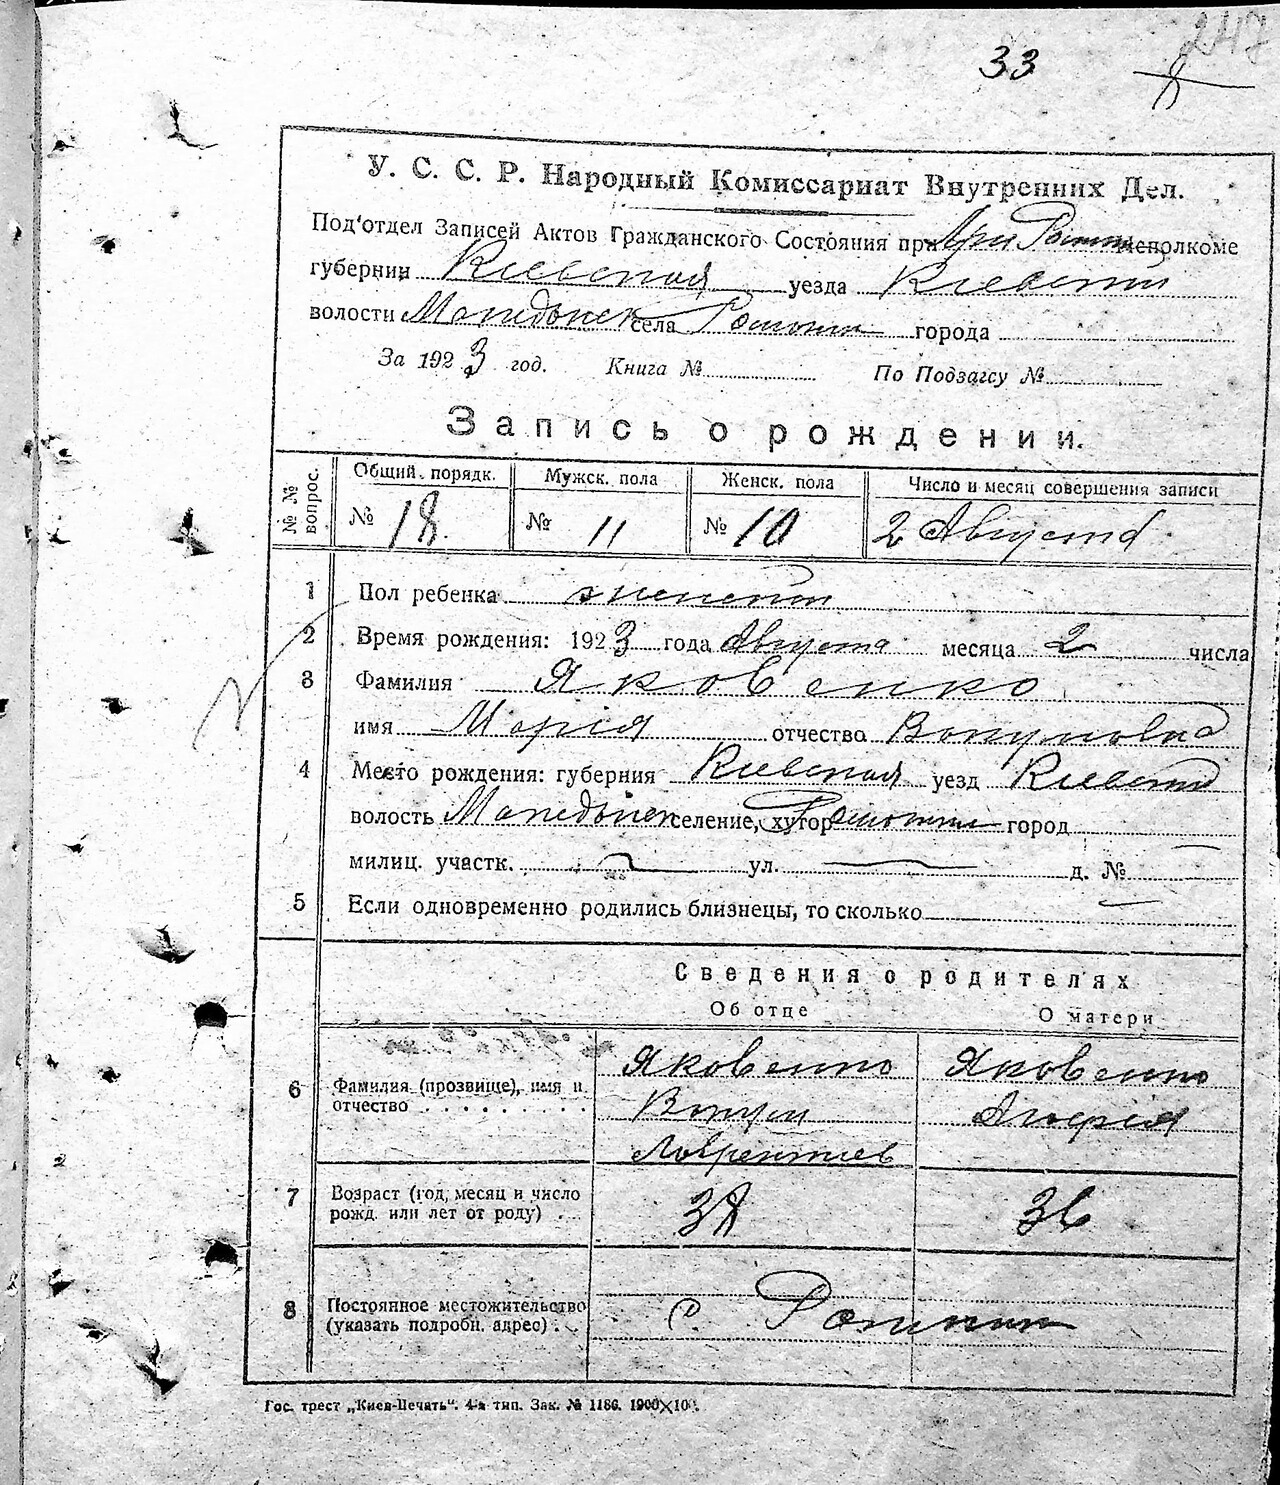 247
33
У. С. С. Р. Народный Комиссариат Внутренних Дел.
Под'отдел Записей Актов Гражданского Состояния при исполкоме
губернии Киевская уезда Киевский
волости села города
За 1923 год. Книга № По Подзагсу №
Запись о рождении.
№№ вопрос. Общий порядк. Мужск. пола Женск. пола Число и месяц совершения записи
№ 18. № 11 № 10 2 Августа
1 Пол ребенка женский
2 Время рождения: 1923 года Августа месяца 2 числа
3 Фамилия Яковенко
имя Марія отчество
4 Место рождения: губерния Киевская уезд Киевский
волость селение, хутор город
милиц. участк. ул. д. №
5 Если одновременно родились близнецы, то сколько
Сведения о родителях
Об отце О матери
6 Фамилия (прозвище), имя и отчество Яковенко Яковенко
7 Возраст (год, месяц и число рожд. или лет от роду) 36
8 Постоянное местожительство (указать подробн. адрес) с.
Гос. трест „Киев-Печать". 4-я тип. Зак. № 1186. 1900×100.